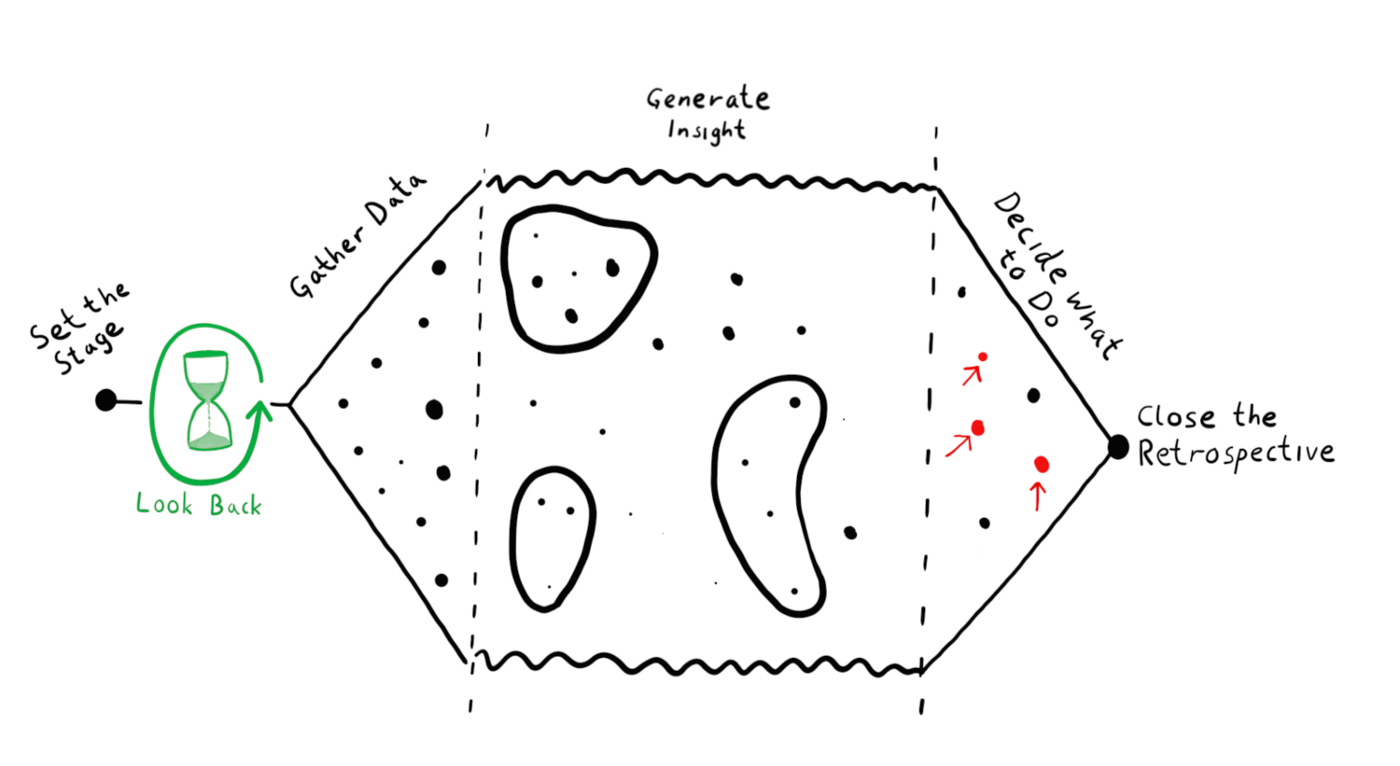 Set the
Stage
Look Back
Gather Data
Generate
Insight
Decide What
to Do
Close the
Retrospective